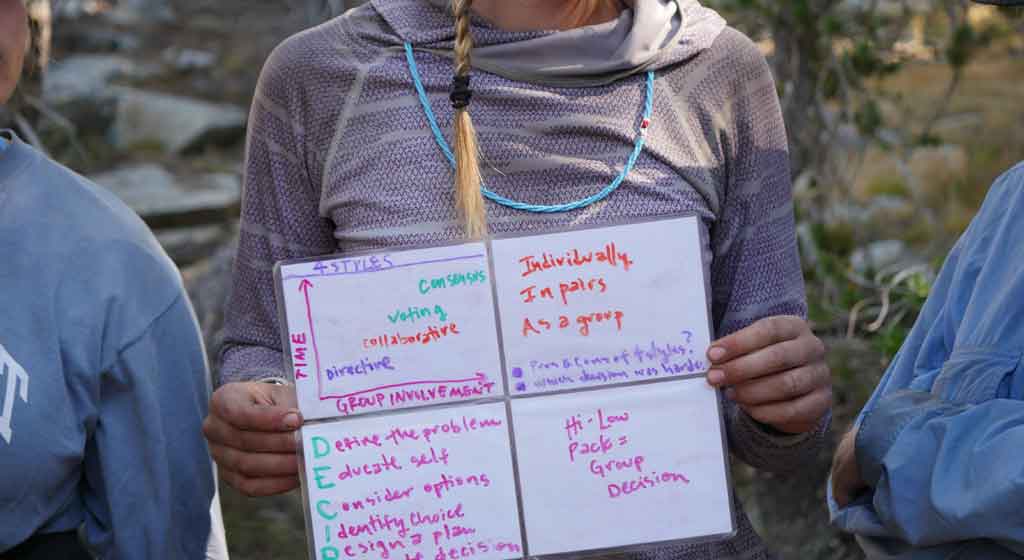 4 STYLES
Consensus
Voting
collaborative
Directive
TIME
GROUP INVOLVEMENT
Individually
In pairs
As a group
Pros & Cons of 4 styles?
which decision was harder
Define the problem
Educate self
Consider options
Identify choice
Design a plan
decision
Hi-Low
Pack =
Group
Decision